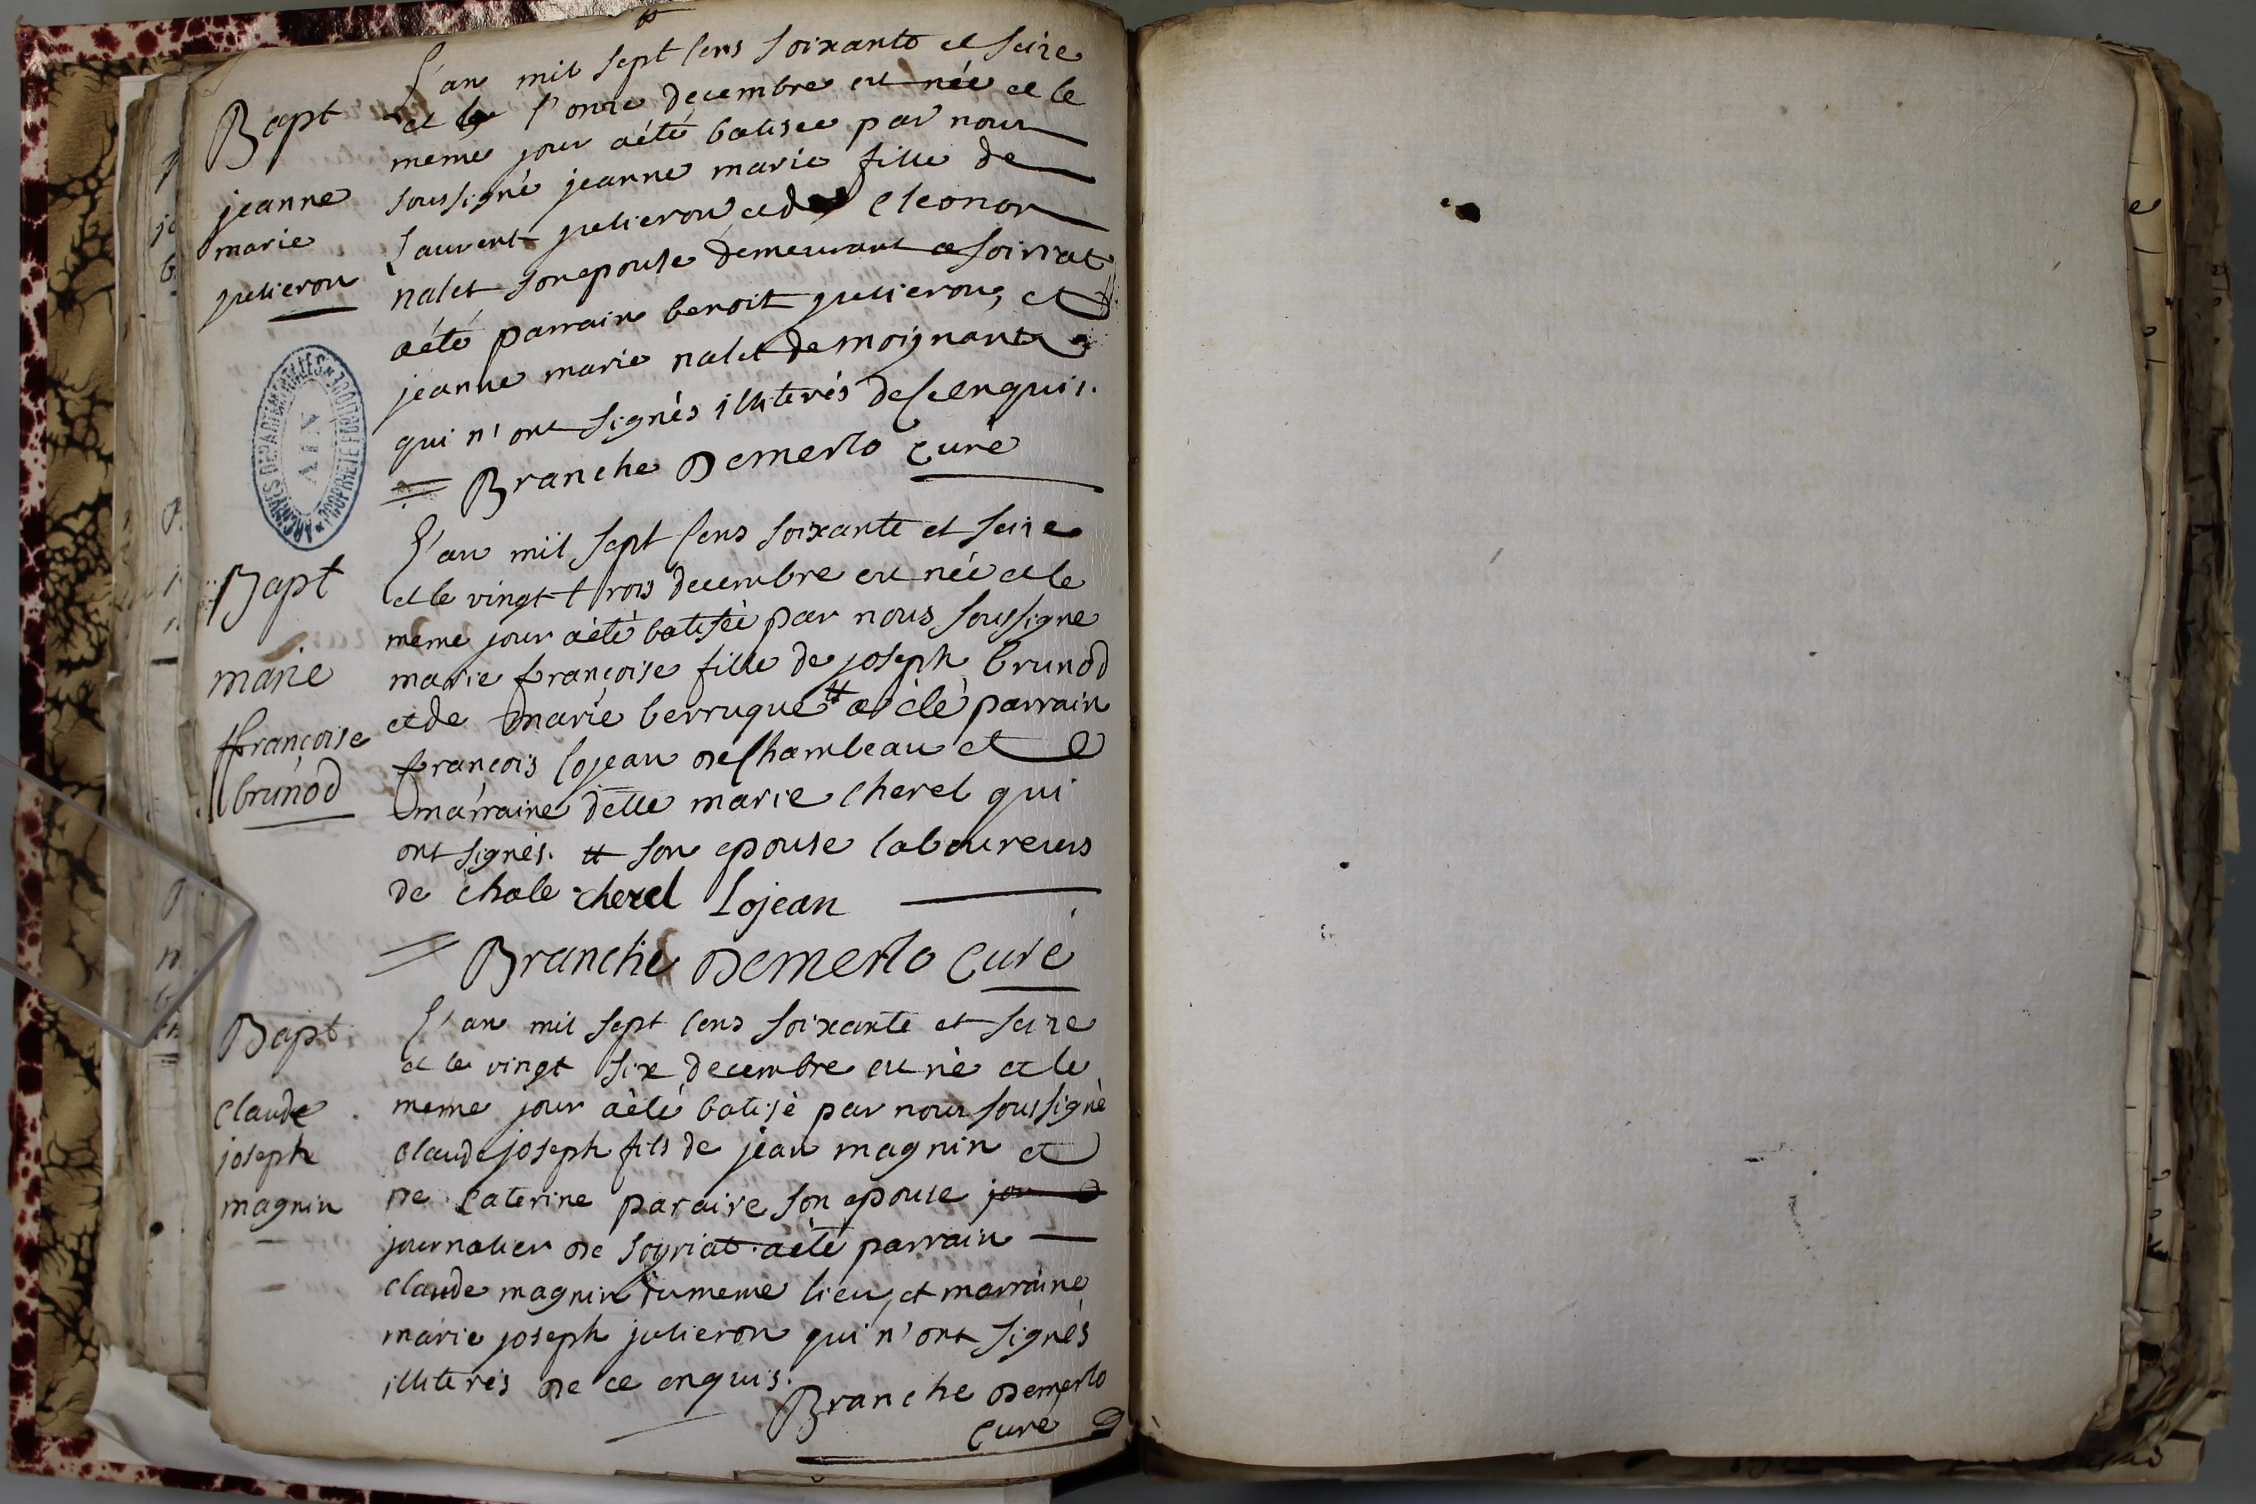 Bapt
jeanne
marie
julieron
L'an mil sept cens soixante et seize
et le l'onze decembre est née et le
meme jour aété batisée par nous
soussigné jeanne marie fille de
Laurent julieron et de eleonor
nalet son epouse demeurant a soiriat
aété parrain benoit julieron, et
jeanne marie nalet de moignant
qui n'ont signés illiterés de ce enquis.
= Branche Demerlo curé
ARCHIVES DEPARTEMENTALES
AIN
PROPRIETE PUBLIQUE
Bapt
marie
françoise
brunod
L'an mil sept cens soixante et seize
et le vingt trois decembre est née et le
meme jour aété batisée par nous soussigne
marie françoise fille de joseph brunod
et de marie berruque # a été parrain
françois lojean de chambeau et
marraine delle marie cherel qui
ont signés. # son epouse laboureurs
de chale cherel Lojean
= Branche Demerlo curé
Bapt
claude
joseph
magnin
L'an mil sept cens soixante et seize
et le vingt six decembre est né et le
meme jour aété batisé par nous soussigné
claude joseph fils de jean magnin et
de caterine paraire son epouse jou
journalier de soyriat. aété parrain
claude magnin du meme lieu, et marraine
marie joseph julieron qui n'ont signés
illiterés de ce enquis.
Branche Demerlo
curé